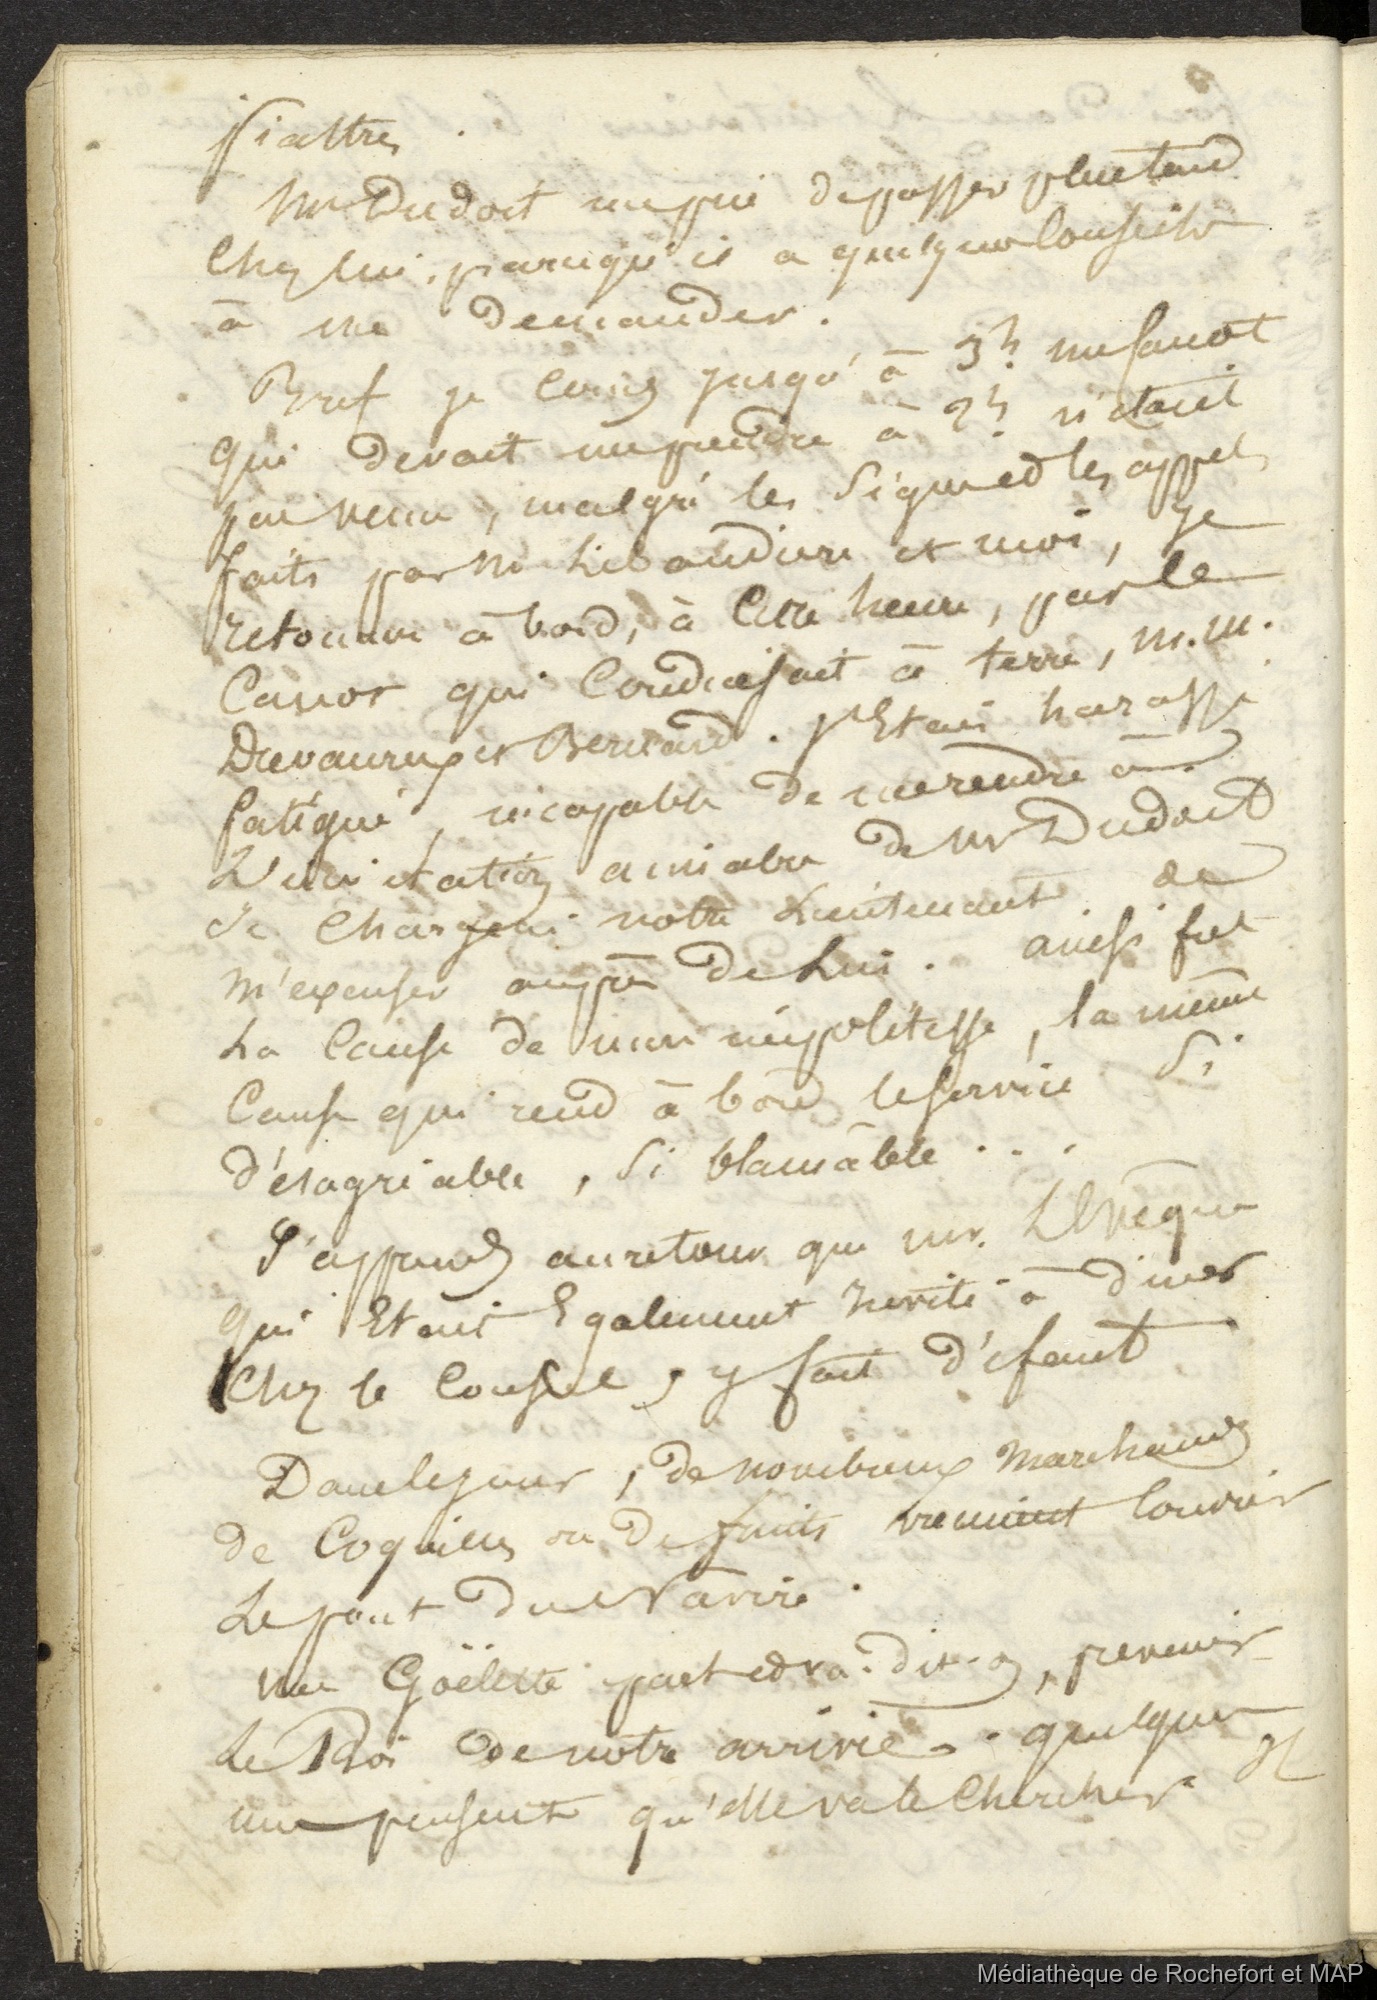 piastres.
Mr Dudoit me prie de passer plus tard
chez lui, parcequ'il a quelques conseils
à me demander.
Bref je cours jusqu'à 3h. mon canot
qui devait me prendre à 2h. n'étant
pas venu, malgré les signes et les appels
faits par Mr Lebaudiere et moi, je
retourne à bord, à cette heure, par le
canot qui conduisait à terre, M.M.
Devaureux et Bernard. J'étais harassé
fatigué, incapable de me rendre à
L'invitation aimable de Mr Dudoit
Je chargeai notre Lieutenant de
m'excuser auprès de Lui. ainsi fut
La cause de mon impolitesse, la même
cause qui rend à bord le service si
d'ésagréable, si blamâble...
J'apprends au retour que mr. L'Evêque
qui Etait Egalement invité à diner
chez le Consul, y fait d'éfaut
Dans le jour, de nombreux marchands
de Coquilles ou de fruits viennent couvrir
Le pont du Navire.
Une Goëlette part et va-dit-on, prévenir
Le Roi de notre arrivée. quelques
uns pensent qu'elle va le chercher
Médiathèque de Rochefort et MAP